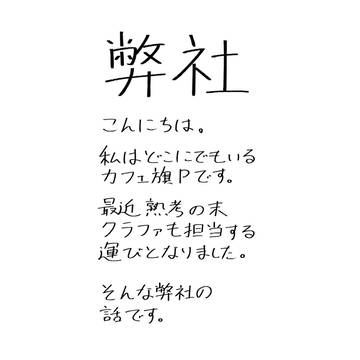 弊社
こんにちは。
私はどこにでもいる
カフェ旗Pです。
最近熟考の末
クラファも担当する
運びとなりました。
そんな弊社の
話です。